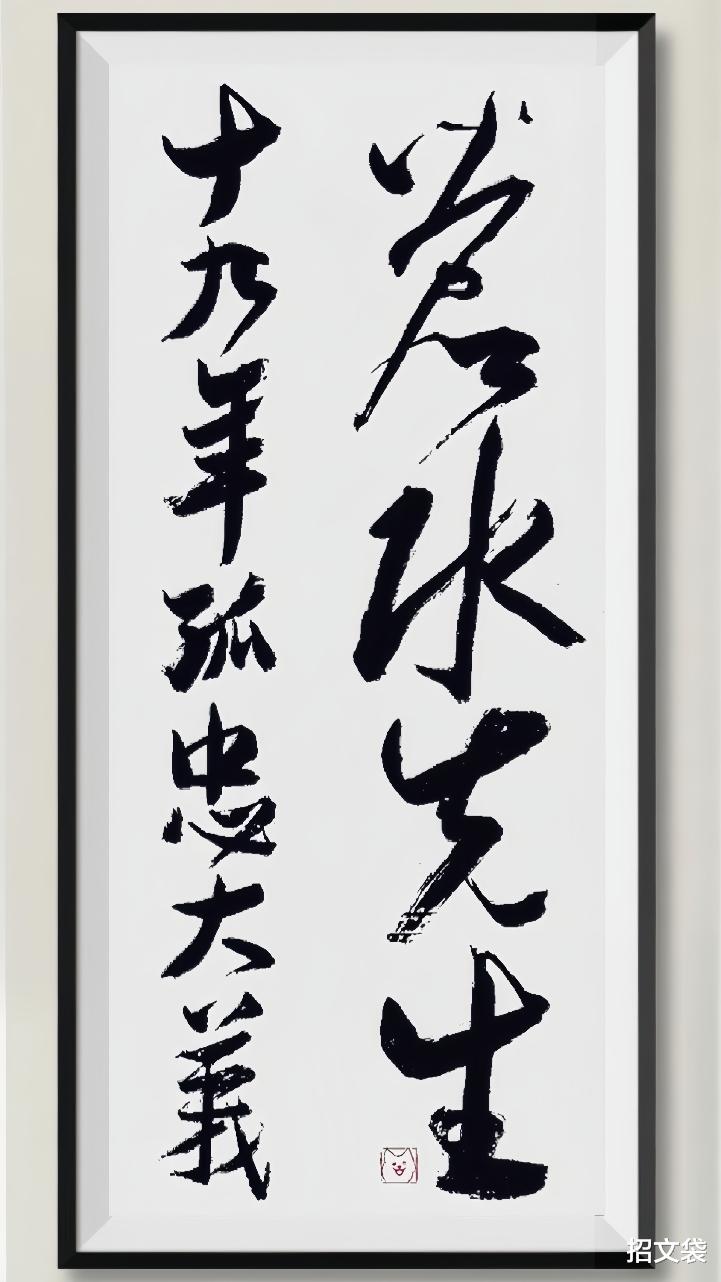 蒼水先生
十九年孤忠大義
招文袋